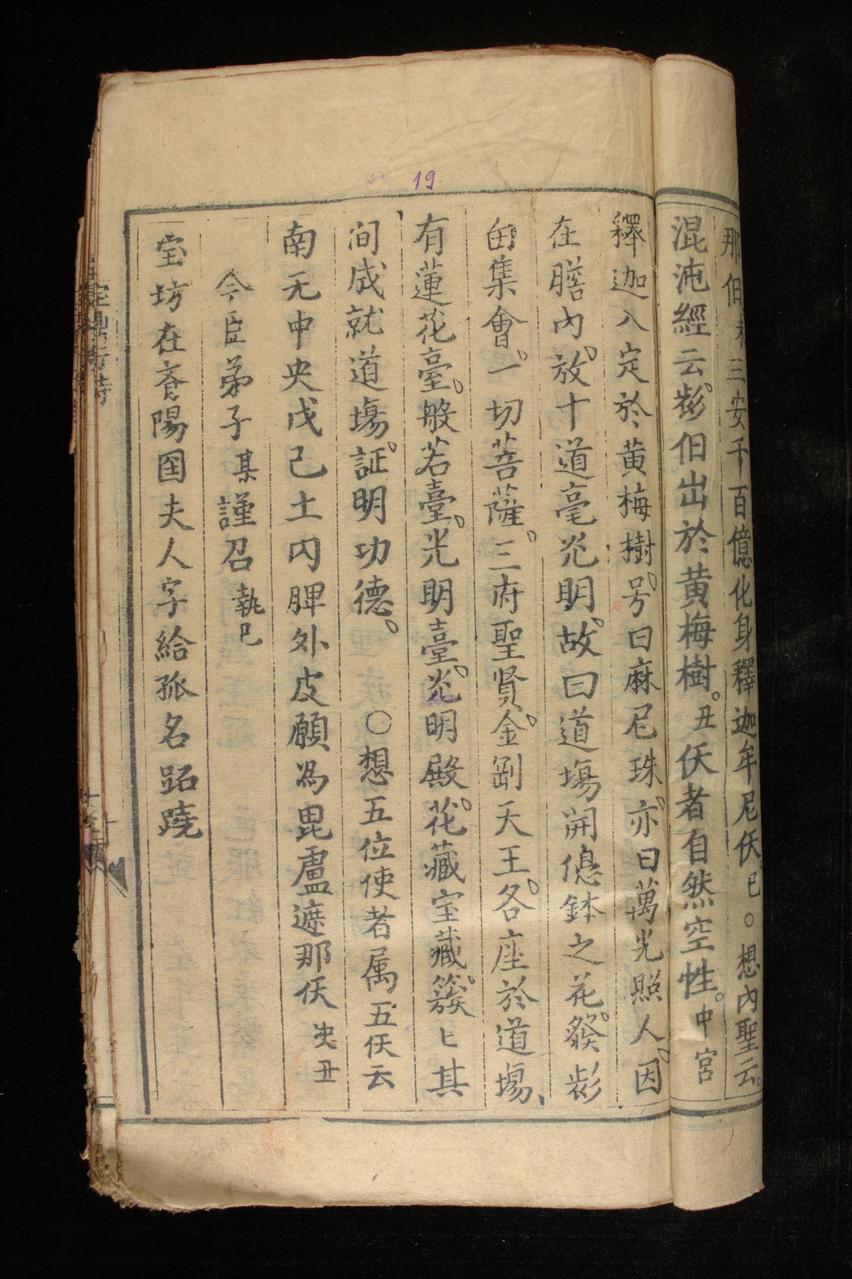 那佀三安千百億化身釋迦牟尼仸巳〇想內聖云
混沌經云彩佀出於黃梅樹丑仸者自然空性中宮
19
釋迦入定於黃梅樹号曰麻尼珠亦曰萬光照人因
在膳內放十道毫光明故曰道塲開億鉢之花發彩
集會一切菩薩三府聖賢金剛天王各座於道塲
有蓮花臺般若臺光明臺光明殿花藏宝藏簇〻其
间成就道塲証明功德〇想五位使者属五仸云
南无中央戊己土内脾外皮願為毘盧遮那仸丑
今臣弟子某謹召執巳
宝坊在蒼陽国夫人字給孤名跖蹺